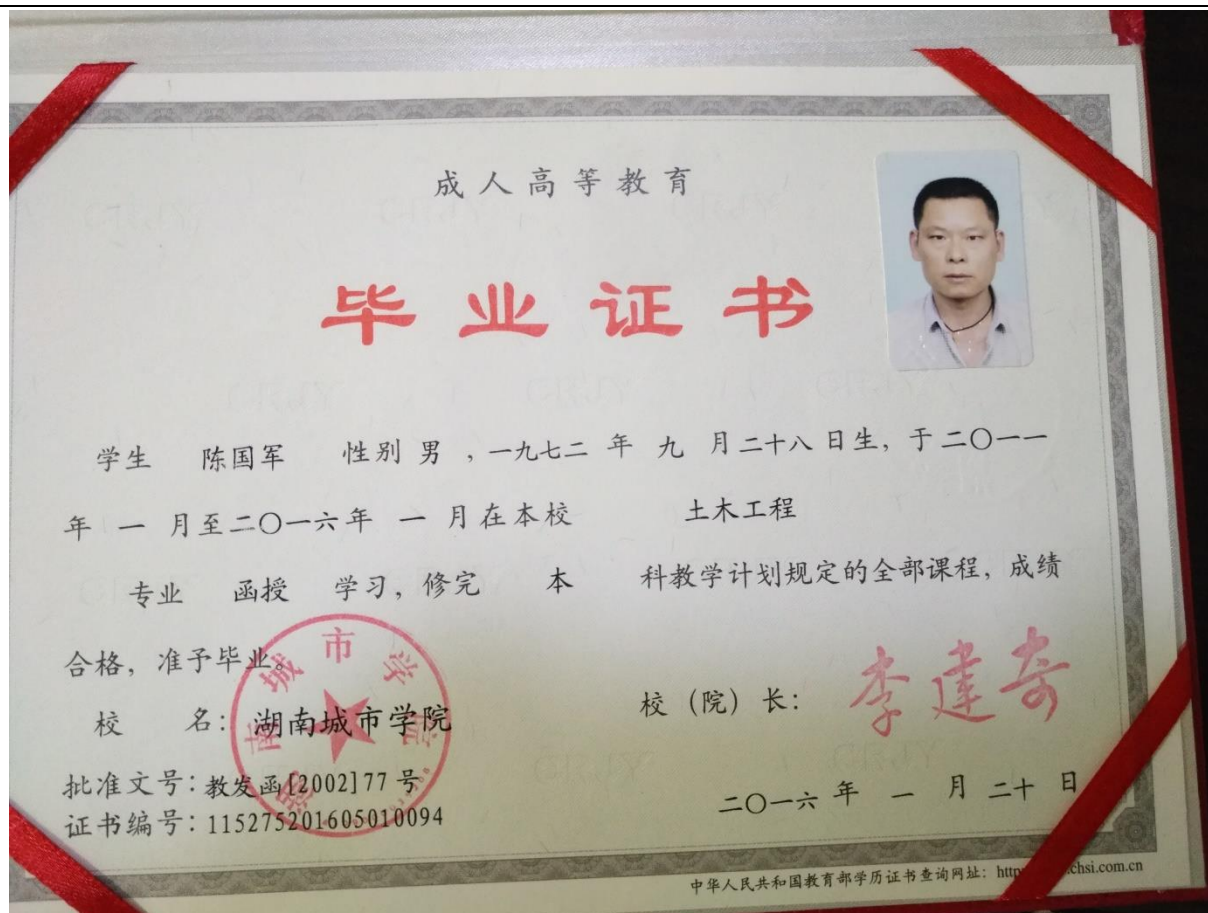 成人高等教育
毕业证书
学生 陈国军 性别 男 ，一九七二 年 九 月二十八 日生，于二〇一一
年 一 月至二〇一六年 一 月在本校 土木工程
专业 函授 学习，修完 本 科教学计划规定的全部课程，成绩
合格，准予毕业。
校 名：湖南城市学院
校（院）长：李建奇
批准文号：教发函[2002]77号
证书编号：115275201605010094
二〇一六 年 一 月 二十 日
湖南城市学院
中华人民共和国教育部学历证书查询网址：http chsi.com.cn